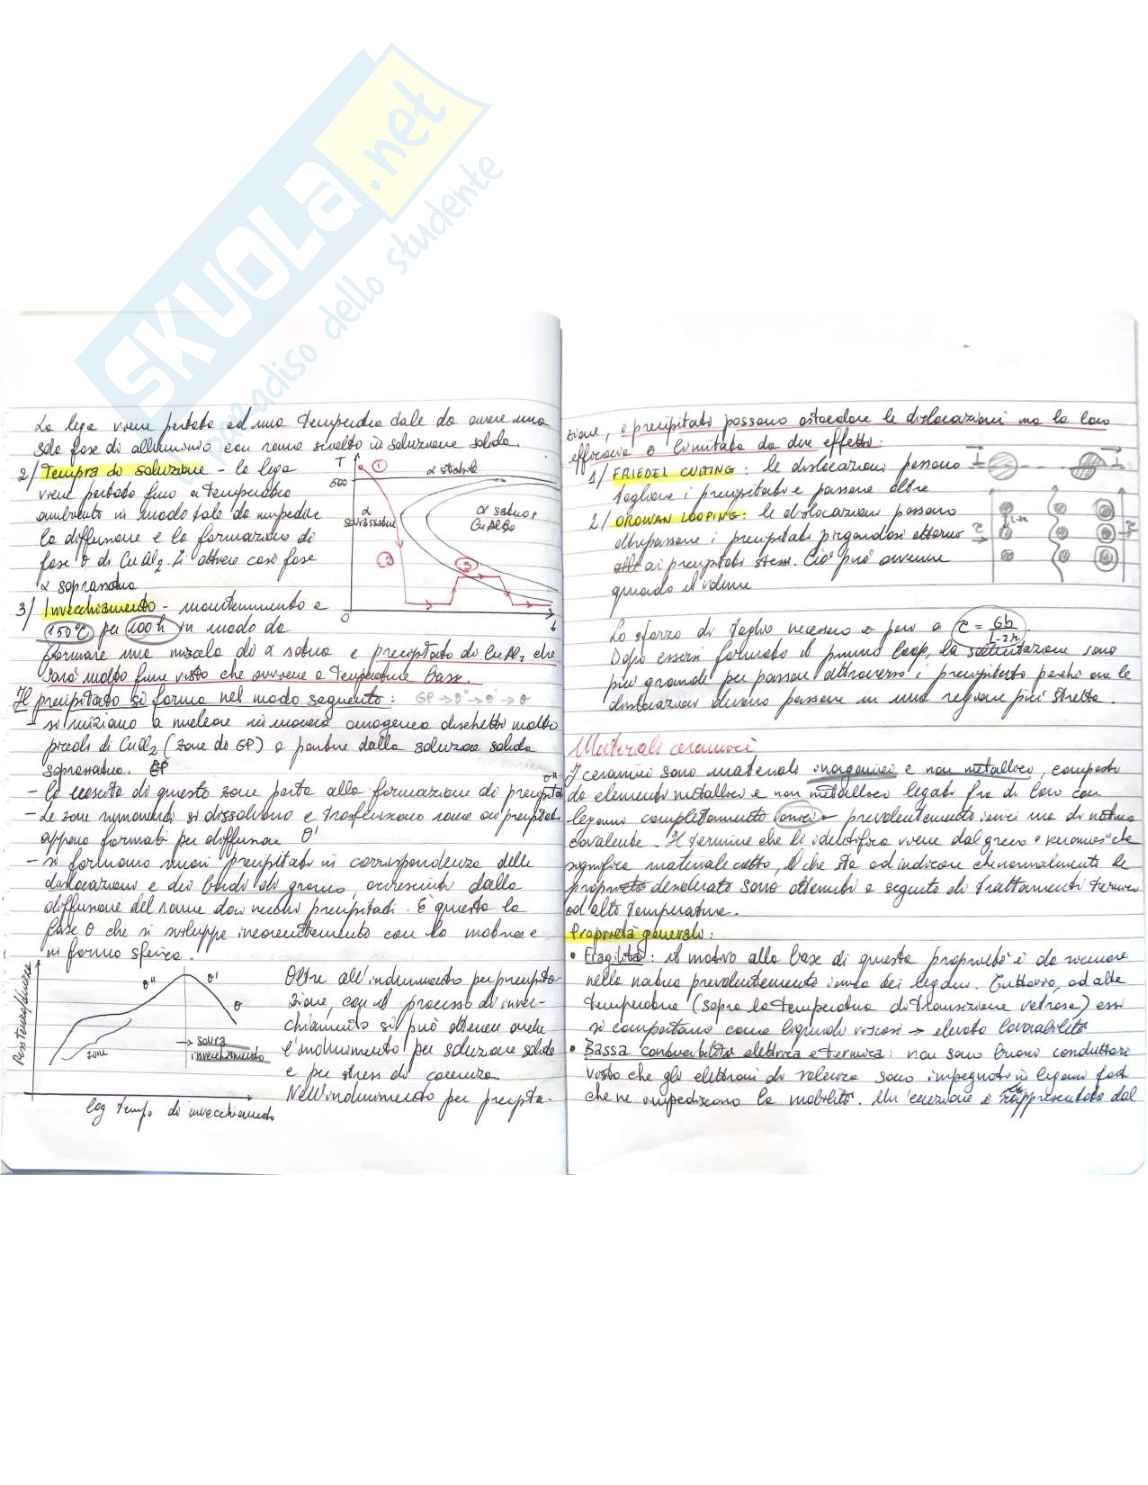 SKUOLA.net
paradiso dello studente
La lega viene portata ad una temperatura tale da avere una
sola fase di alluminio con rame sciolto in soluzione solida.
2/ Tempra di soluzione - la lega
viene portata fino a temperatura
ambiente in modo tale da impedire
la diffusione e la formazione di
fase θ di CuAl2. Si ottiene così fase
α soprasatura
3/ Invecchiamento - mantenimento a
150°C per 100h in modo da
formare una miscela di α satura e precipitato di CuAl2 che
sarà molto fine visto che avviene a temperature basse.
T
500
① α stabile
α
②
α satura +
CuAl2
③
0
t
Il precipitato si forma nel modo seguente: GP→θ"→θ'→θ
- si iniziano a nucleare in maniera omogenea dischetti molto
piccoli di CuAl2 (zone di GP) a partire dalla soluzione solida
soprasatura. GP
- la crescita di queste zone porta alla formazione di precipitati θ"
- Le zone rimanenti si dissolvono e trasferiscono rame ai precipitati
appena formati per diffusione θ'
- si formano nuovi precipitati in corrispondenza delle
dislocazioni e dei bordi di grano, accresciuti dalla
diffusione del rame dai vecchi precipitati. È questa la
fase θ che si sviluppa incoerentemente con la matrice e
in forma sferica.
Resistenza/durezza
θ" θ' θ
zone
→ sovra
invecchiamento
log tempo di invecchiamento
Oltre all'indurimento per precipita-
zione, con il processo di invec-
chiamento si può ottenere anche
l'indurimento per soluzione solida
e per stress di coerenza
Nell'indurimento per precipita-
zione, i precipitati possono ostacolare le dislocazioni ma la loro
efficacia è limitata da due effetti:
1/ FRIEDEL CUTTING: le dislocazioni possono
tagliare i precipitati e passare oltre
2/ OROWAN LOOPING: le dislocazioni possono
oltrepassare i precipitati piegandosi attorno
alle ai precipitati stessi. Ciò può avvenire
quando il volume
τ
L-2r
τ
Lo sforzo di taglio necessario è pari a τ = Gb/L-2r
Dopo essersi formato il primo loop, la sollecitazione sarà
più grande per passare attraverso i precipitati perché ora le
dislocazioni devono passare in una regione più stretta.
Materiali ceramici
I ceramici sono materiali inorganici e non metallici, composti
da elementi metallici e non metallici legati fra di loro con
legami completamente ionici o prevalentemente ionici ma di natura
covalente. Il termine che li identifica viene dal greco "keramos" che
significa materiale cotto, il che sta ad indicare che normalmente le
proprietà desiderate sono ottenute a seguito di trattamenti termici
ad alte temperature.
Proprietà generali:
• Fragilità: il motivo alla base di questa proprietà è da ricercare
nella natura prevalentemente ionica dei legami. Tuttavia, ad alte
temperature (sopra la temperatura di transizione vetrosa) essi
si comportano come liquidi viscosi → elevata lavorabilità
• Bassa conducibilità elettrica e termica: non sono buoni conduttori
visto che gli elettroni di valenza sono impegnati in legami forti
che ne impediscono la mobilità. Un'eccezione è rappresentata dal